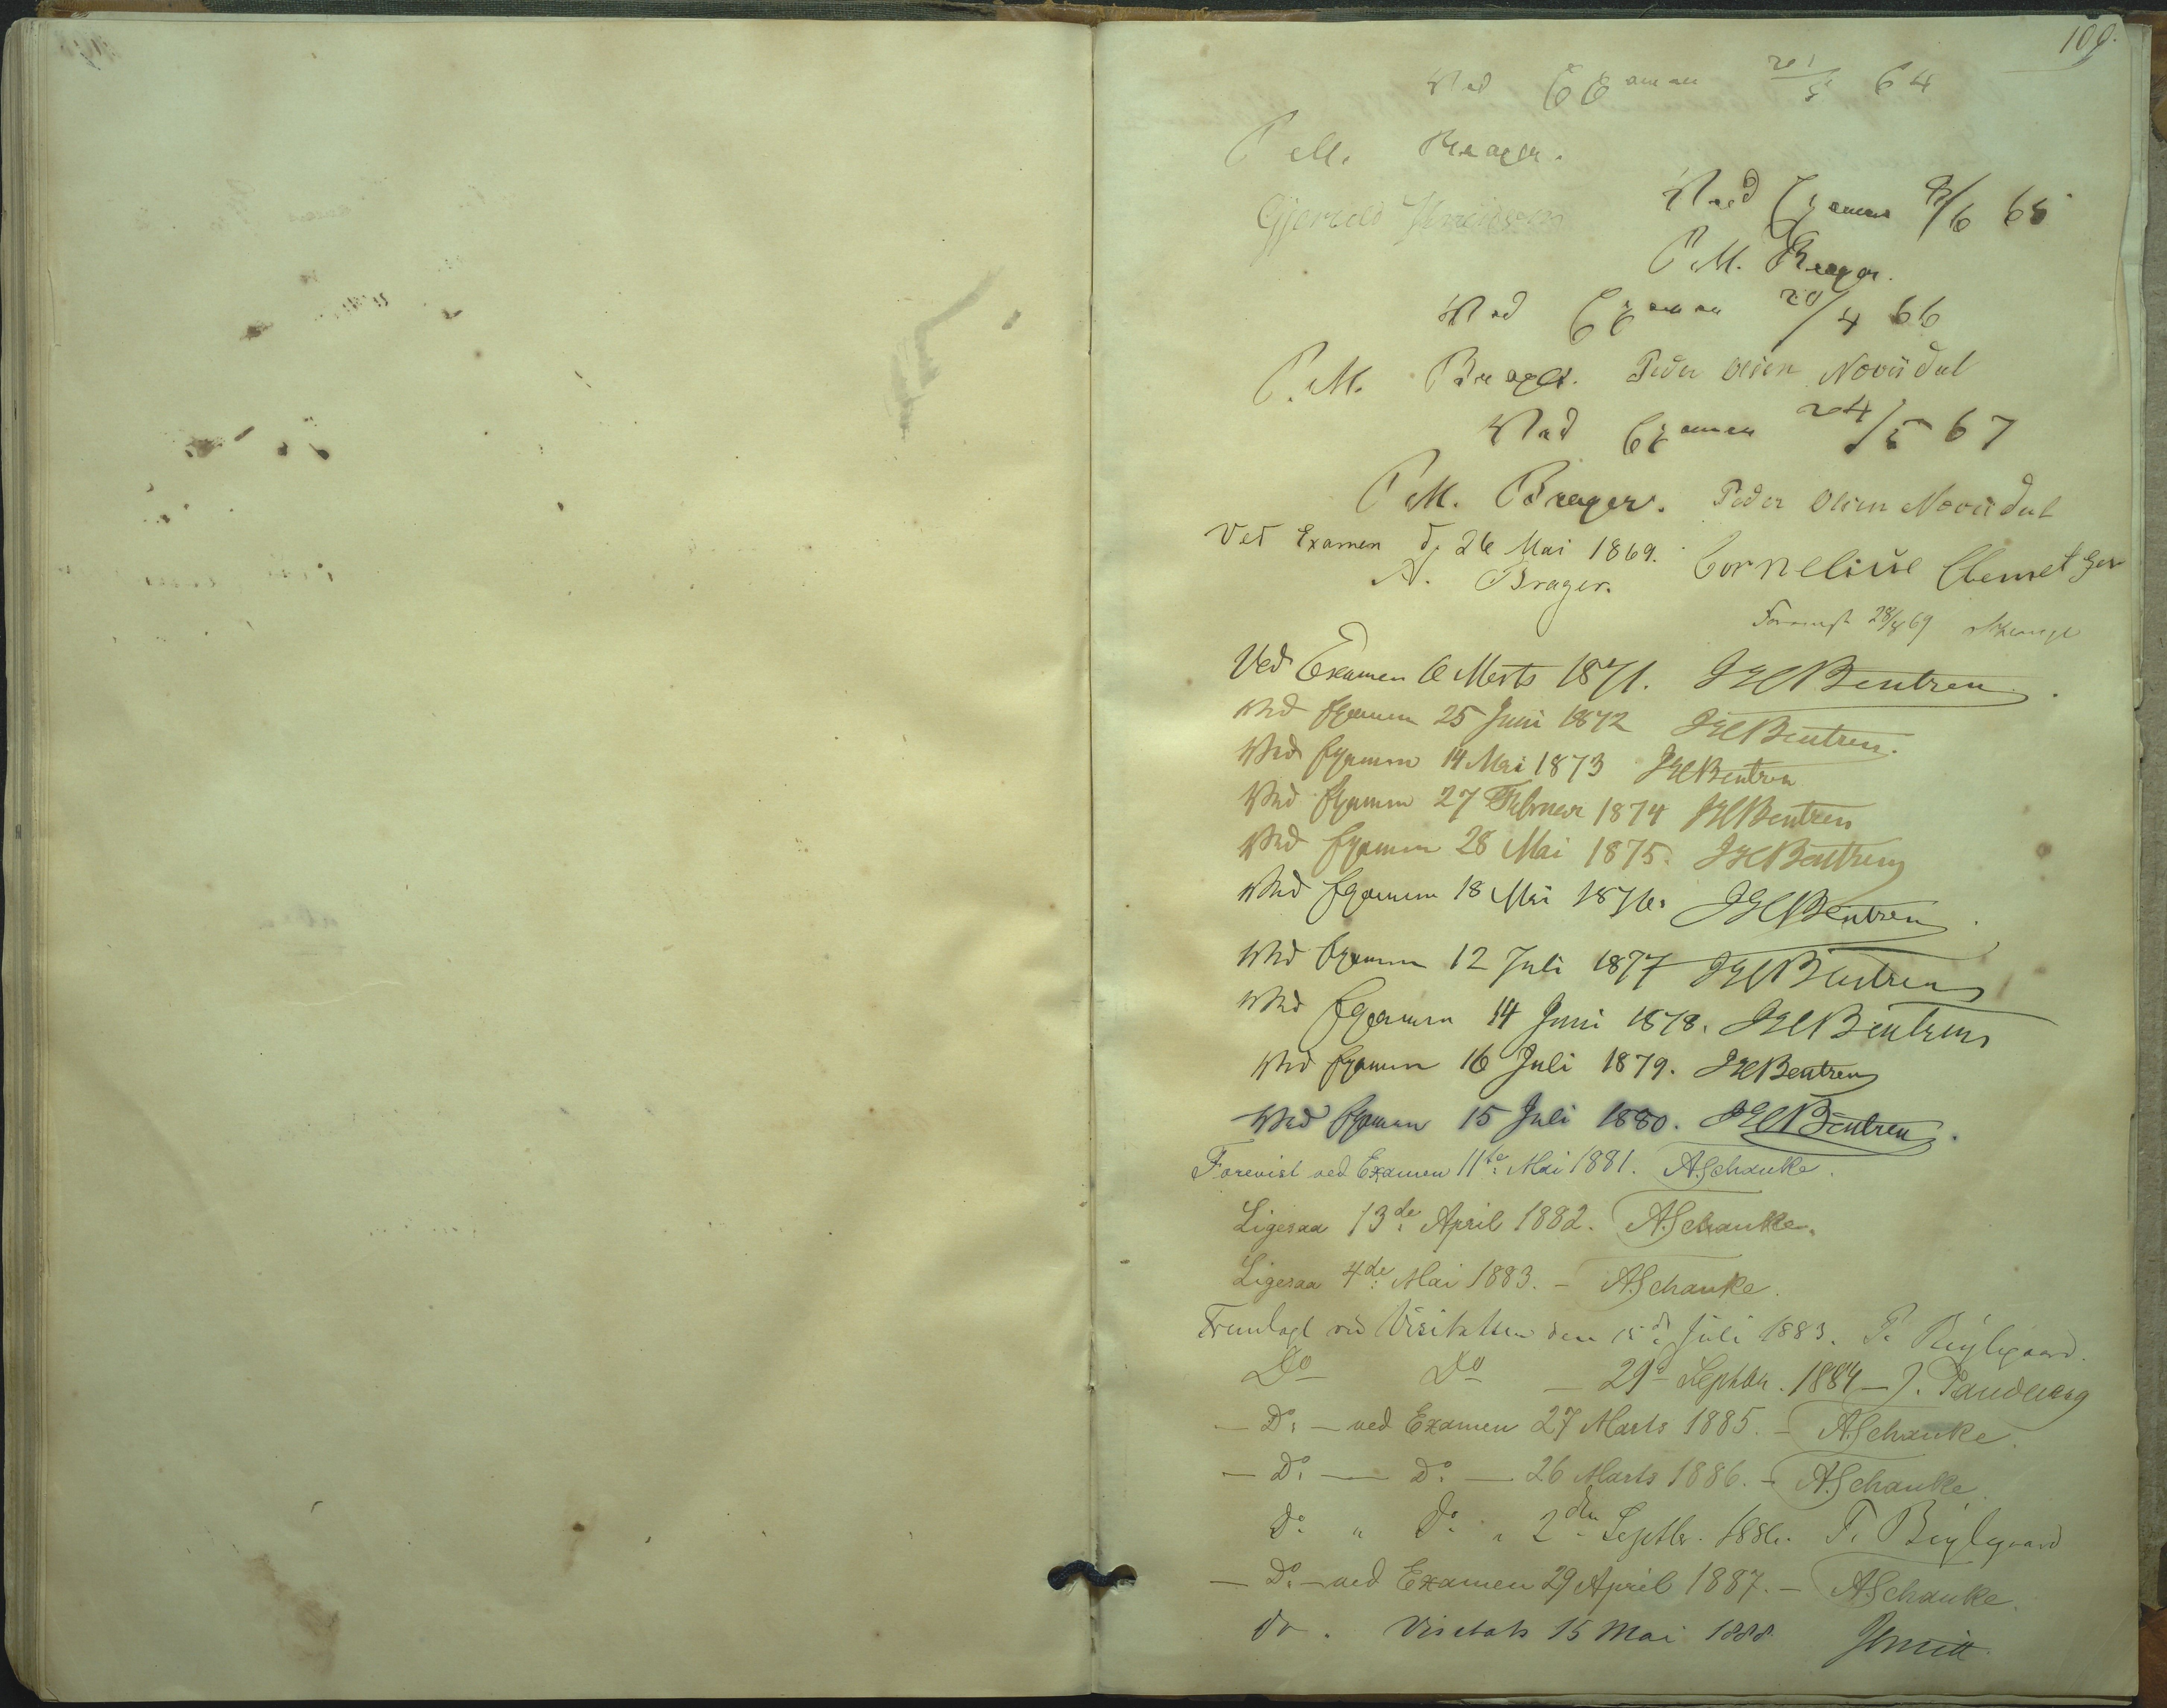 109.
Ved Examen 20/5 64
P. M. Brager.
Ved Examen 9/6 65
P. M. Brager.
Ved Examen 20/4 66
P. M. Brager. Peder Olsen Noviidal
Ved Examen 24/5 67
P. M. Brager. Peder Olsen Noviidal
Ved Examen d. 26 Mai 1869.
A. Brager. Cornelius Clemetsen
28/8 69
Ved Examen 6 Marts 1871. JHCBentzen.
Ved Examen 25 Juni 1872 JHCBentzen.
Ved Examen 14 Mai 1873 JHCBentzen
Ved Examen 27 Februar 1874 JHCBentzen
Ved Examen 28 Mai 1875. JHCBentzen
Ved Examen 18 Mai 1876. JHCBentzen.
Ved Examen 12 Juli 1877 JHCBentzen
Ved Examen 14 Juni 1878. JHCBentzen
Ved Examen 16 Juli 1879. JHCBentzen
Ved Examen 15 Juli 1880. JHCBentzen.
Forevist ved Examen 11te Mai 1881. ASchanke.
Ligesaa 13de April 1882. ASchanke.
Ligesaa 4de Mai 1883. - ASchanke.
Fremlagt ved Visitatsen den 15de Juli 1883.
Do Do - 29 Septbr. 1884 - J.
- Do. - ved Examen 27 Marts 1885. - ASchanke.
- Do. - Do. - 26 Marts 1886. - ASchanke.
Do. " Do. " 2den Septbr. 1886.
- Do. - ved Examen 29 April 1887. - ASchanke.
do. Visitats 15 Mai 1888